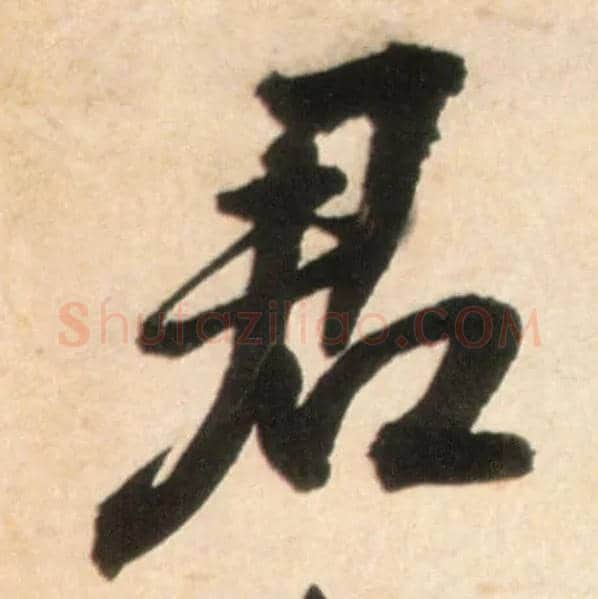 君
Shufaziliao.COM